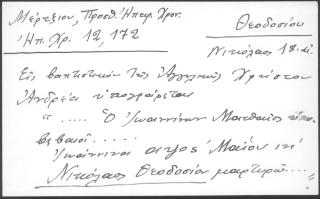 Μέρτζιου, Προσθ. Ἠπειρ. Χρον.
Ἠπ. Χρ. 12, 172
Θεοδοσίου
Νικόλαος 18. αἰ.
Εἰς βαπτιστικὸν τῆς Ἀγγελικῆς Χρήστου
Ἀνδρέα ὑπογράφεται
" ..... Ὁ Ἰωαννίνων Ματθαῖος ὑπο-
βεβαιοῖ .....
Ἰωάννινα αψος Μαΐου ιή
Νικόλαος Θεοδοσίου μαρτυρῶ ...."